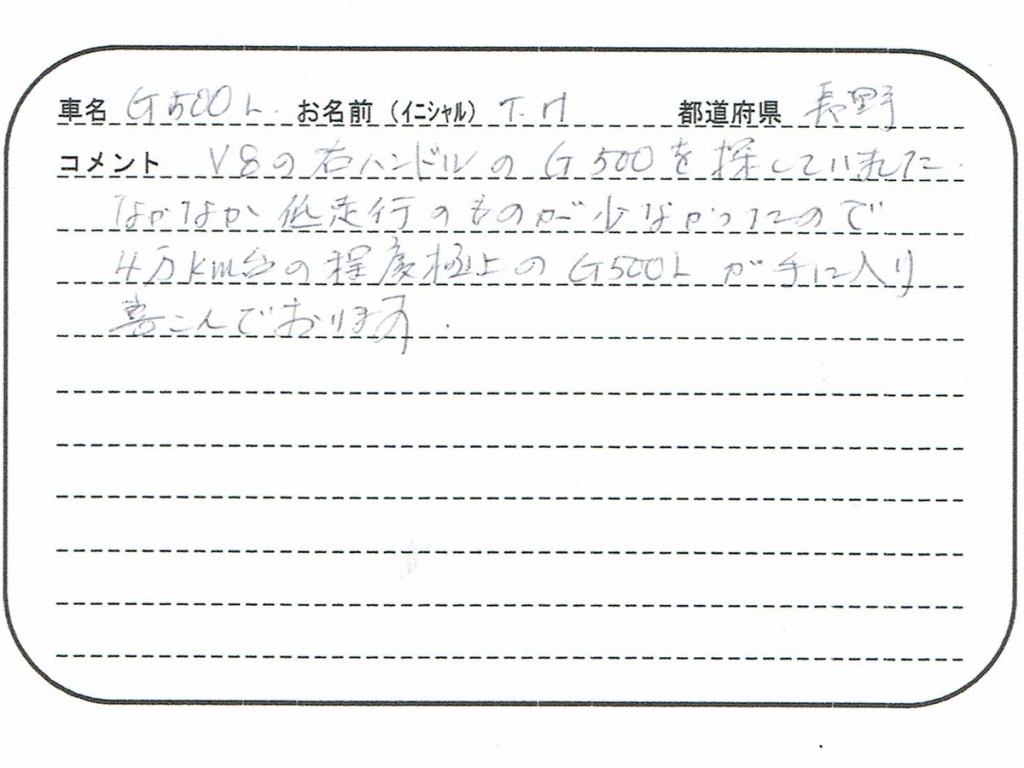 車名 G500L. お名前（イニシャル） T.M 都道府県 長野
コメント V8の右ハンドルのG500を探していました.
なかなか低走行のものが少なかったので
4万km台の程度極上のG500Lが手に入り
喜こんでおります.